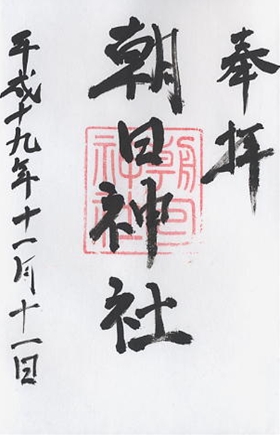 奉拝
朝日神社
朝日神社
平成十九年十一月十一日